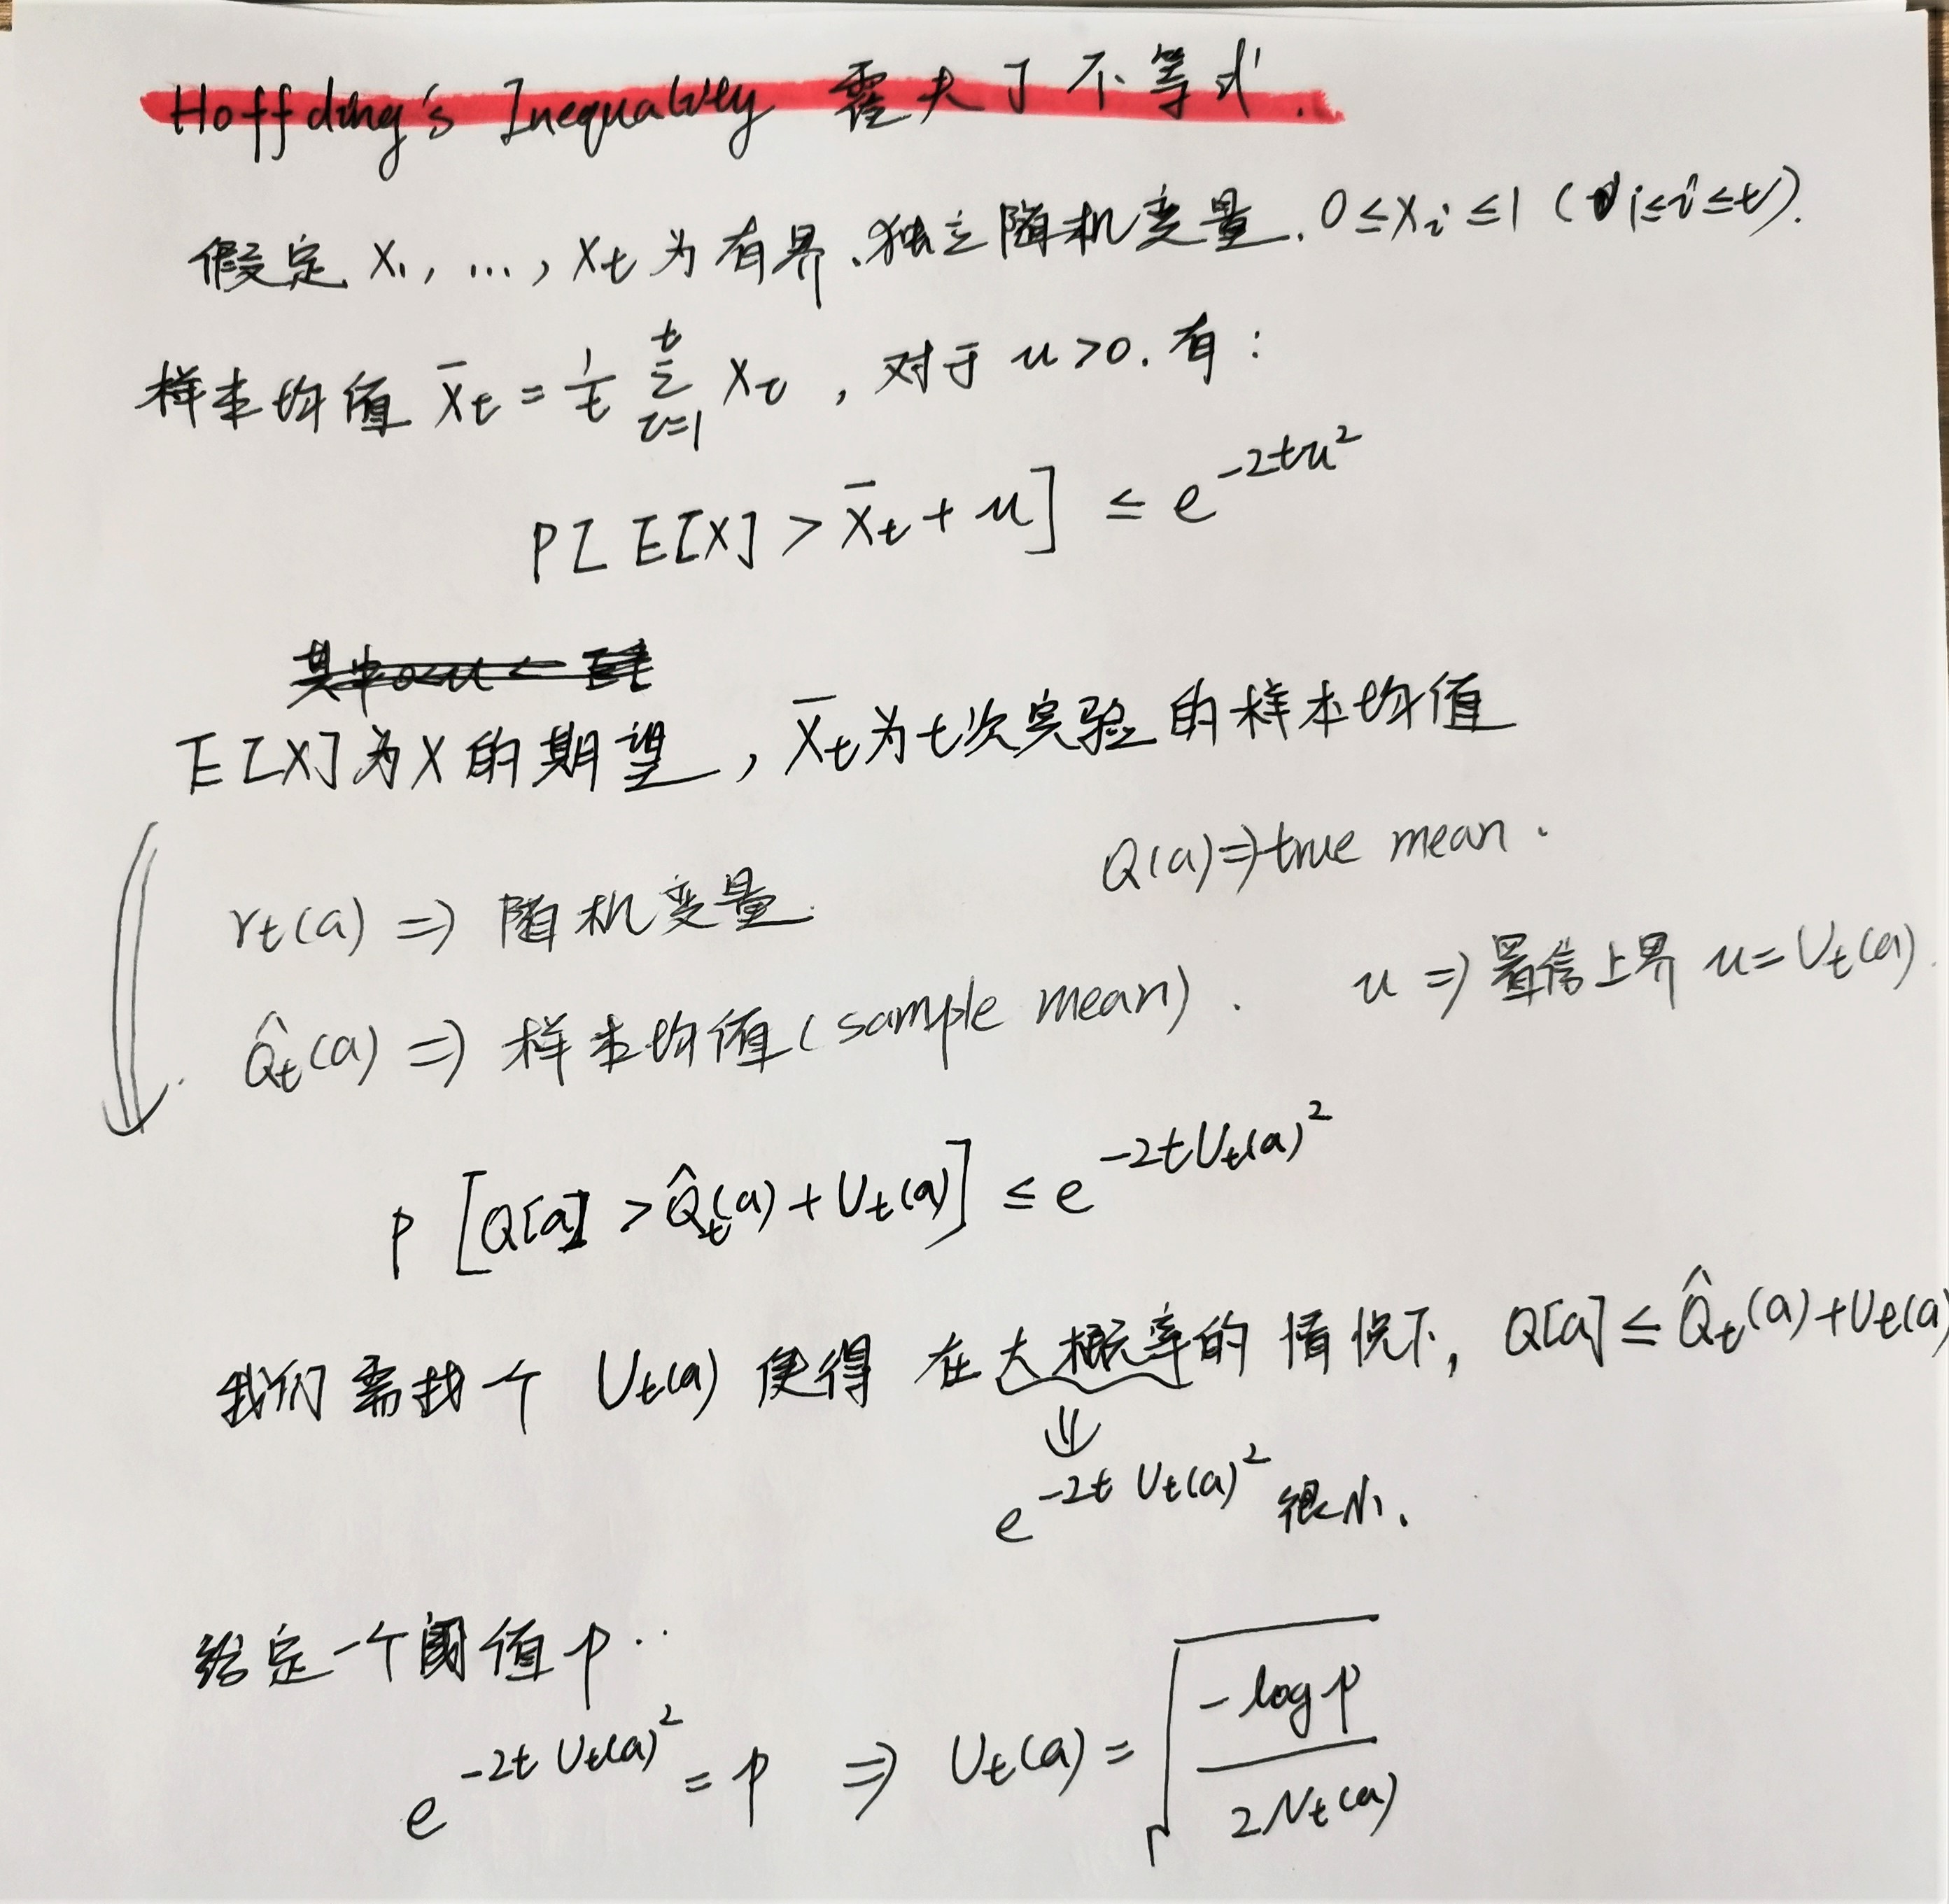 Hoffding's Inequality 霍夫丁不等式.
假定 X₁, ..., Xₜ 为有界、独立随机变量, 0≤Xᵢ≤1 (1≤i≤t).
样本均值 X̄ₜ = 1/t Σ_{τ=1}^{t} X_τ , 对于 u>0. 有:
P[E[X] > X̄ₜ + u] ≤ e^{-2tu²}
E[X]为X的期望, X̄ₜ为t次实验的样本均值
Q(a)⇒true mean.
rₜ(a) ⇒ 随机变量.
u ⇒ 置信上界 u=Uₜ(a).
Q̂ₜ(a) ⇒ 样本均值(sample mean).
P[Q[a] > Q̂ₜ(a) + Uₜ(a)] ≤ e^{-2tUₜ(a)²}
我们需找一个 Uₜ(a) 使得 在大概率的情况下, Q[a] ≤ Q̂ₜ(a)+Uₜ(a
⇓
e^{-2t Uₜ(a)²} 很小.
给定一个阈值p..
e^{-2t Uₜ(a)²} = p ⇒ Uₜ(a) = √(-log p / 2Nₜ(a))